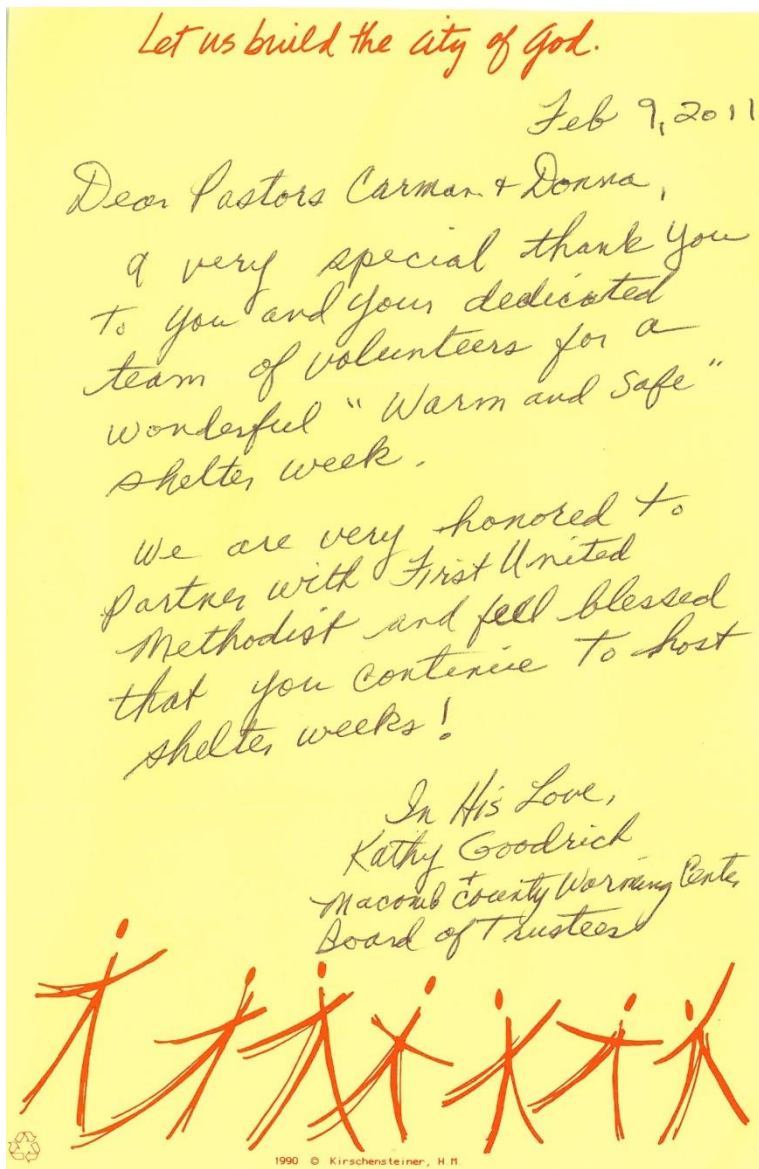 Let us build the city of God.
Feb 9, 2011
Dear Pastors Carman + Donna,
A very special thank you
to you and your dedicated
team of volunteers for a
wonderful "Warm and Safe"
shelter week.
We are very honored to
partner with First United
Methodist and feel blessed
that you continue to host
shelter weeks!
In His Love,
Kathy Goodrich
+
Macomb County Warming Center
Board of Trustees
1990 © Kirschensteiner, H.M.